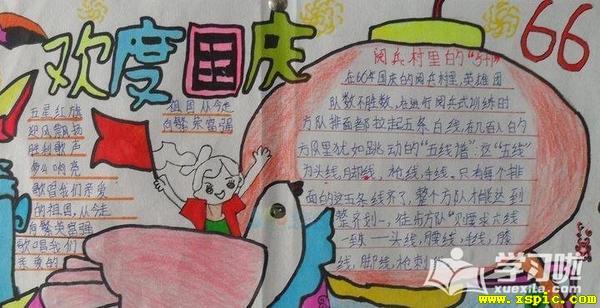 欢度国庆
66
五星红旗
迎风飘扬
胜利歌声
多么响亮
歌唱我们亲爱
的祖国,从今走
向繁荣富强
歌唱我们
亲爱的
祖国从今走
向繁荣富强
阅兵村里的
在66年国庆的阅兵村里,英雄团
队数不胜数,在进行阅兵式训练时
方队排面都拉起五条白线,在几百人的
方队里犹如跳动的“五线谱”这“五线”
为头线,脚线,枪线,手线。只有每个排
面的这五条线齐了,整个方队才能达到
整齐划一,徒步方队
头线,腰线,手线,膝
线,脚线,枪刺
学习啦
www.xuexila.com
www.xspic.com